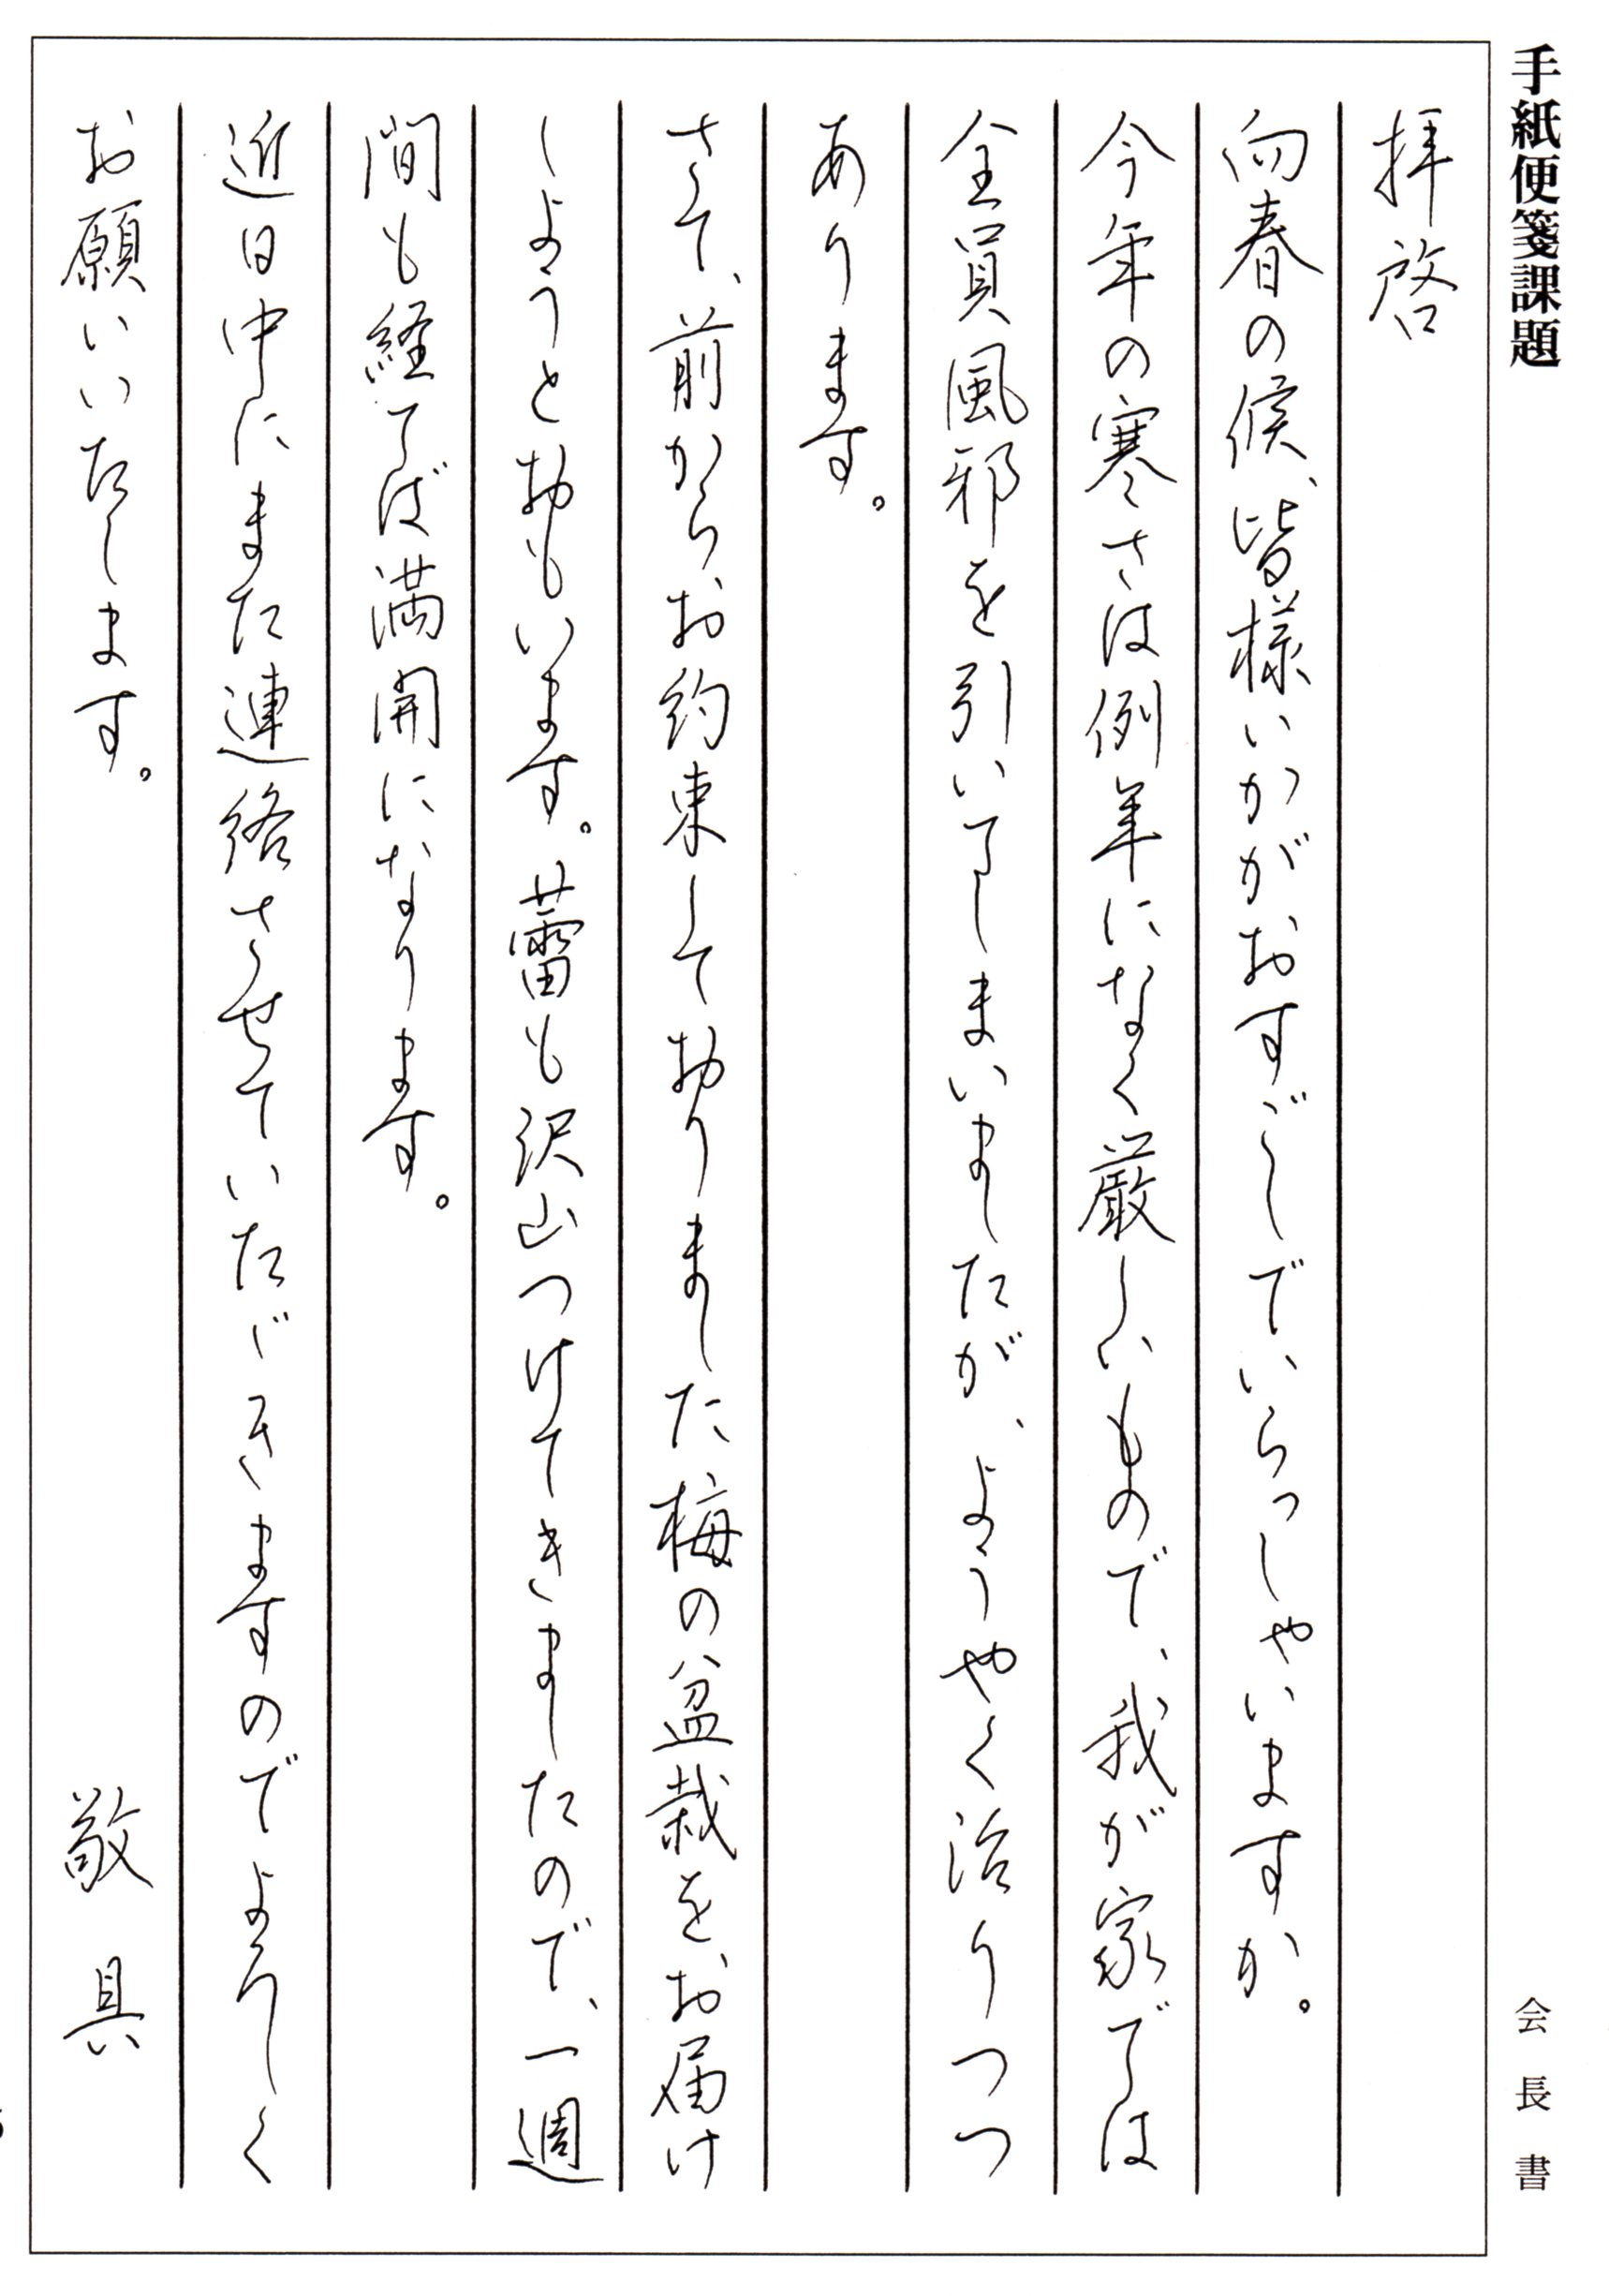 手紙便箋課題
会長書
拝啓
向春の候、皆様いかがおすごしでいらっしゃいますか。
今年の寒さは例年になく厳しいもので、我が家では
全員風邪を引いてしまいましたが、ようやく治りつつ
あります。
さて、前からお約束しておりました梅の盆栽をお届け
しようとおもいます。蕾も沢山つけてきましたので、一週
間も経てば満開になります。
近日中にまた連絡させていただきますのでよろしく
お願いいたします。
敬具